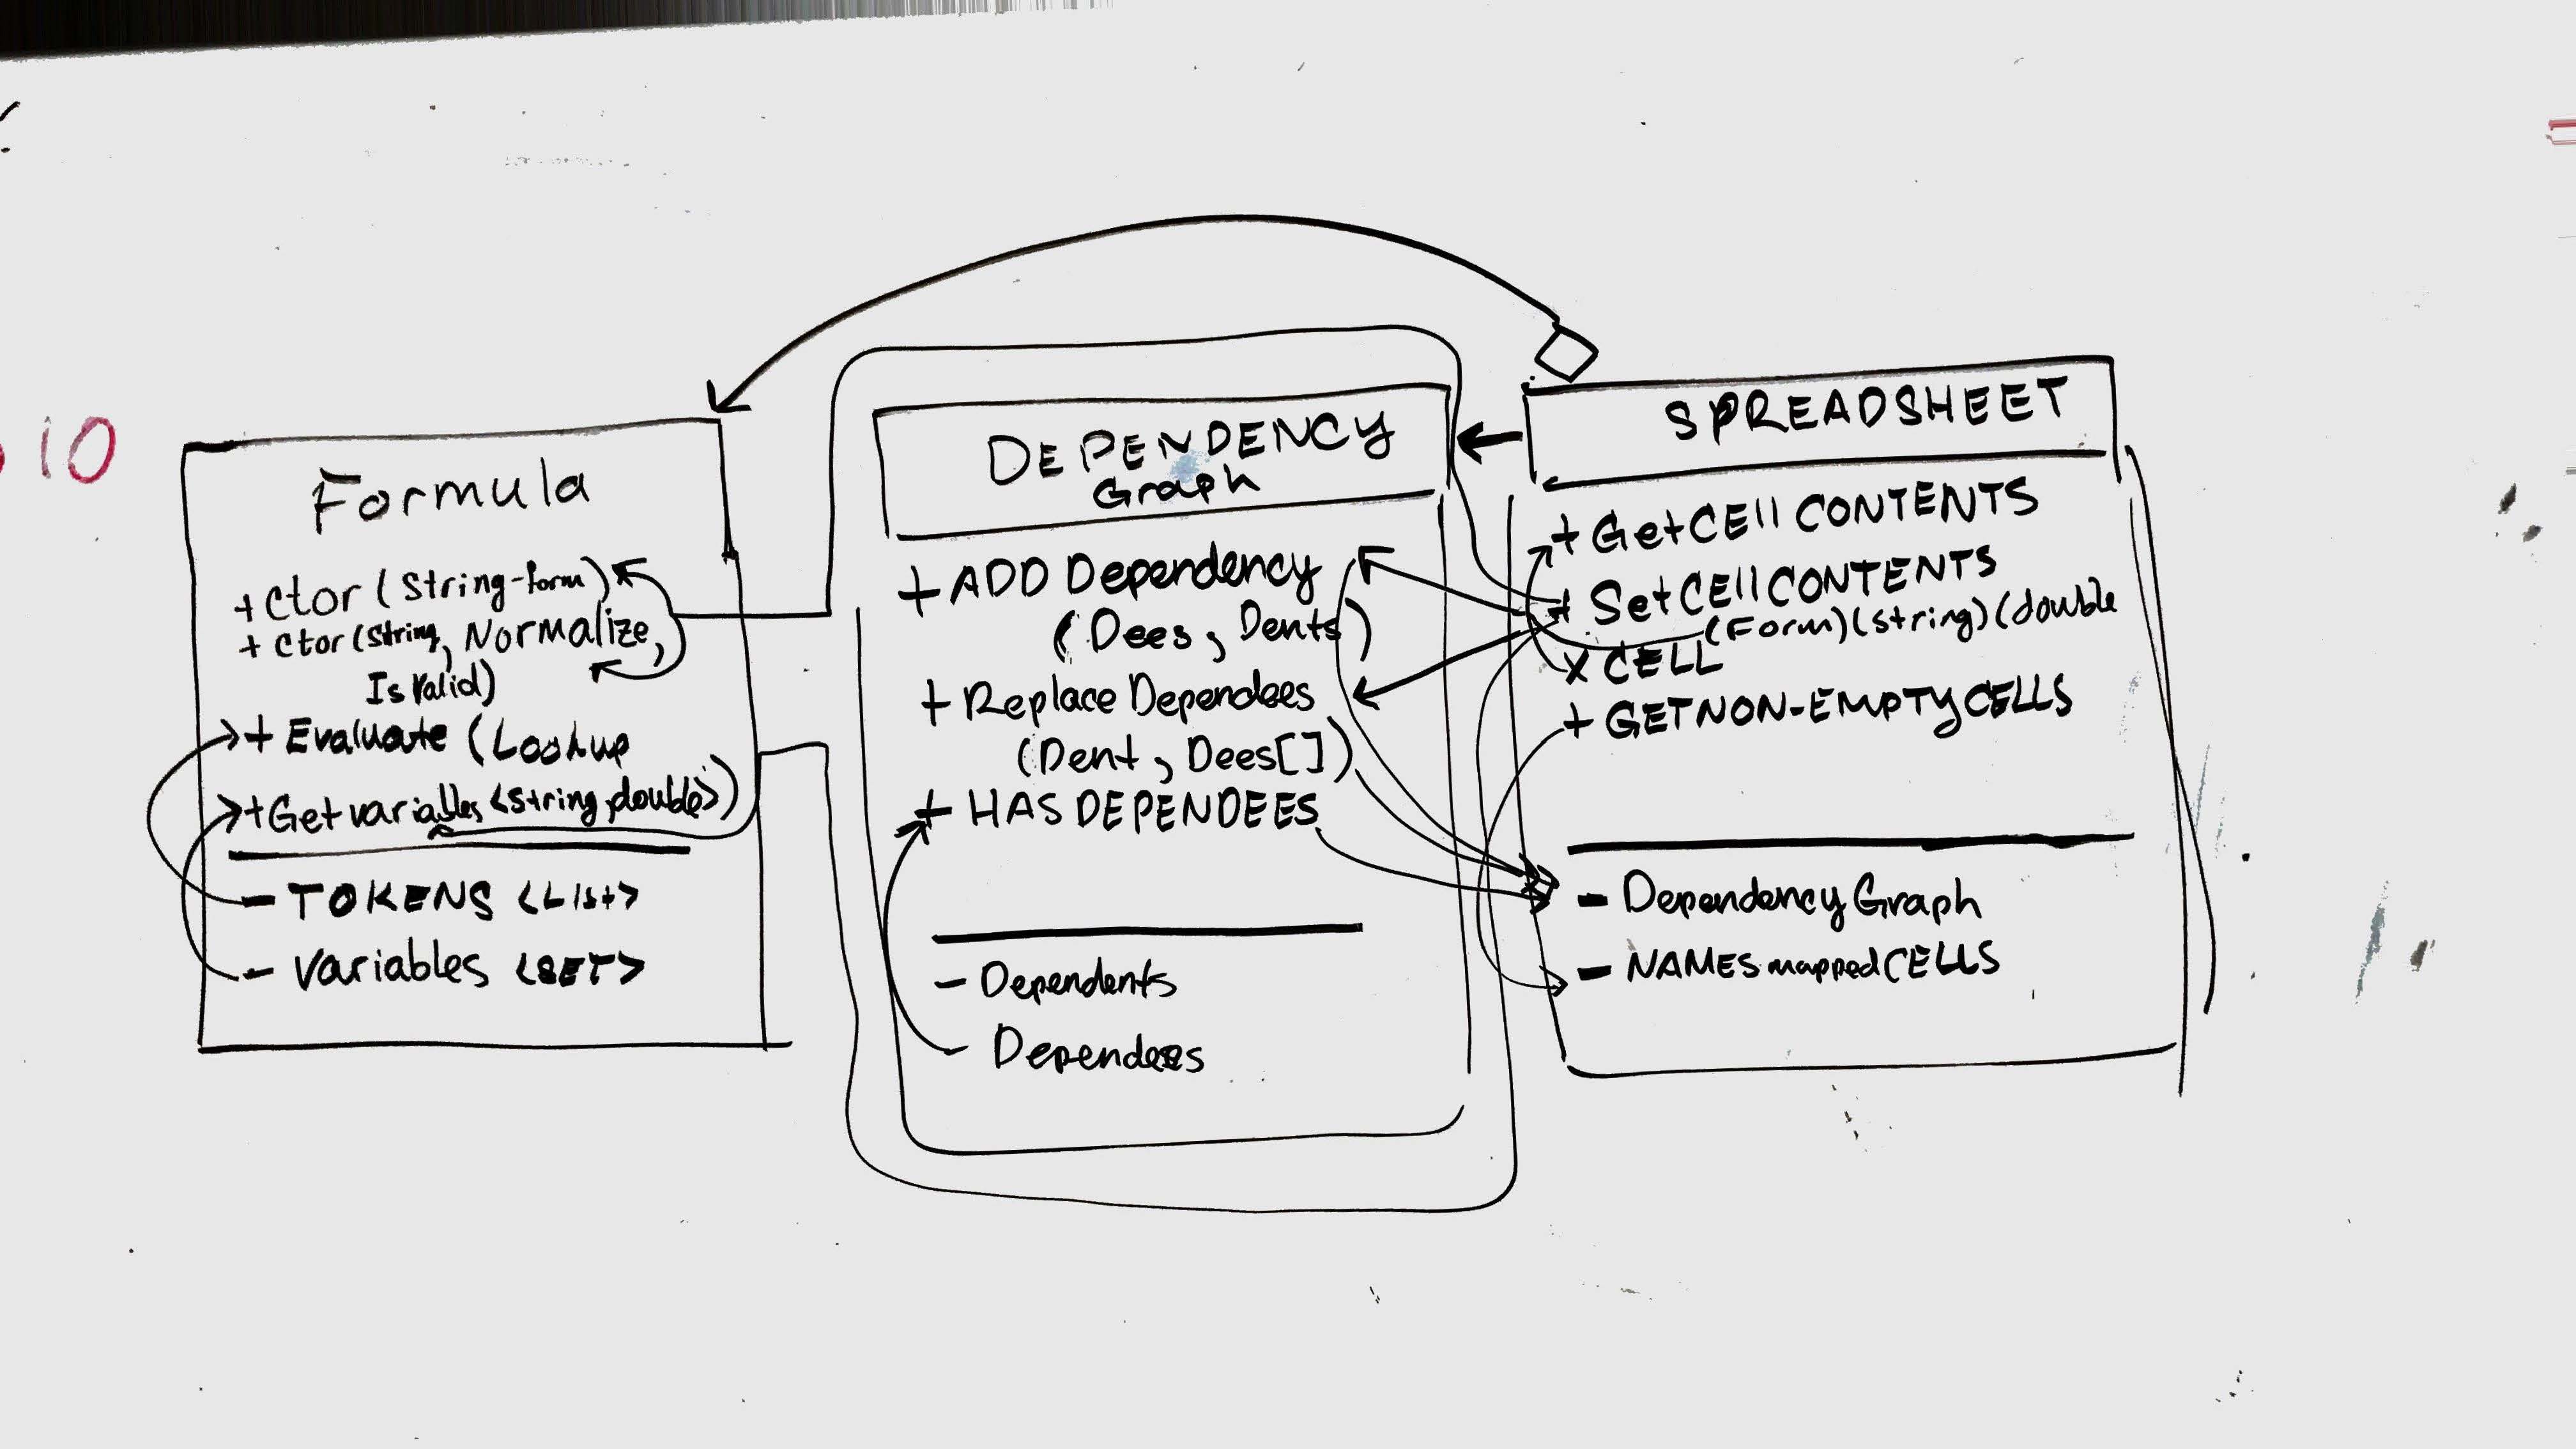 10
Formula
+ Ctor (String-form)
+ Ctor (String, Normalize,
IsValid)
+ Evaluate (Lookup
<String, double>)
+ Get variables
- TOKENS <List>
- Variables <SET>
DEPENDENCY
Graph
+ ADD Dependency
(Dees, Dents)
+ Replace Dependees
(Dent, Dees[])
+ HAS DEPENDEES
- Dependents
- Dependees
SPREADSHEET
+ GetCEll CONTENTS
+ SetCEll CONTENTS
(Form)(string)(double
x CELL
+ GETNON-EMPTYCELLS
- Dependency Graph
- NAMES mapped CELLS